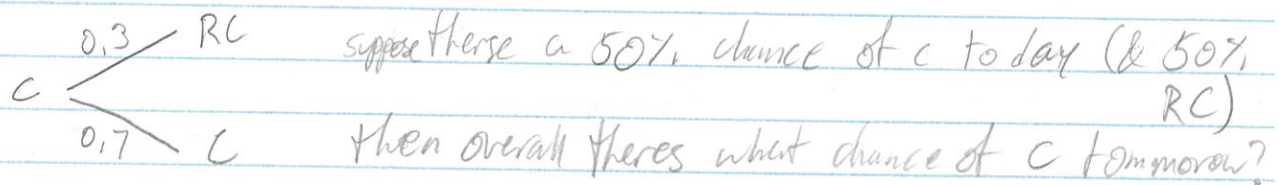 0.3 RC suppose therse a 50% chance of c today (& 50%
C RC)
0.7 C then overall theres what chance of C tommorow?